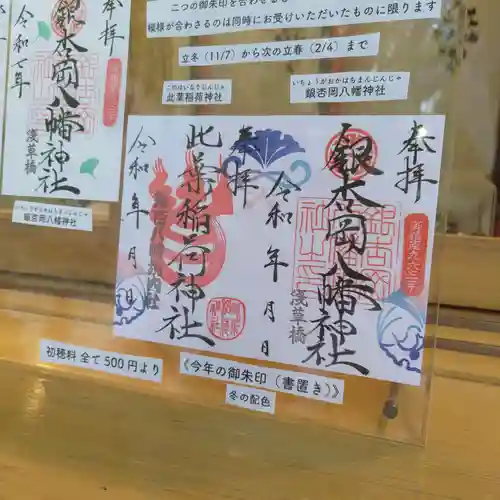 二つの御朱印を合わせる
模様が合わさるのは同時にお受けいただいたものに限ります
立冬（11/7）から次の立春（2/4）まで
このはいなりじんじゃ
此葉稲荷神社
いちょうがおかはちまんじんじゃ
銀杏岡八幡神社
奉拝
銀杏岡八幡神社
浅草橋
令和七年
いちょうがおかはちまんじんじゃ
銀杏岡八幡神社
奉拝
銀杏岡八幡神社
浅草橋
令和 年 月 日
奉拝
此葉稲荷神社
令和 年 月 日
初穂料 全て500円より
《今年の御朱印（書置き）》
冬の配色